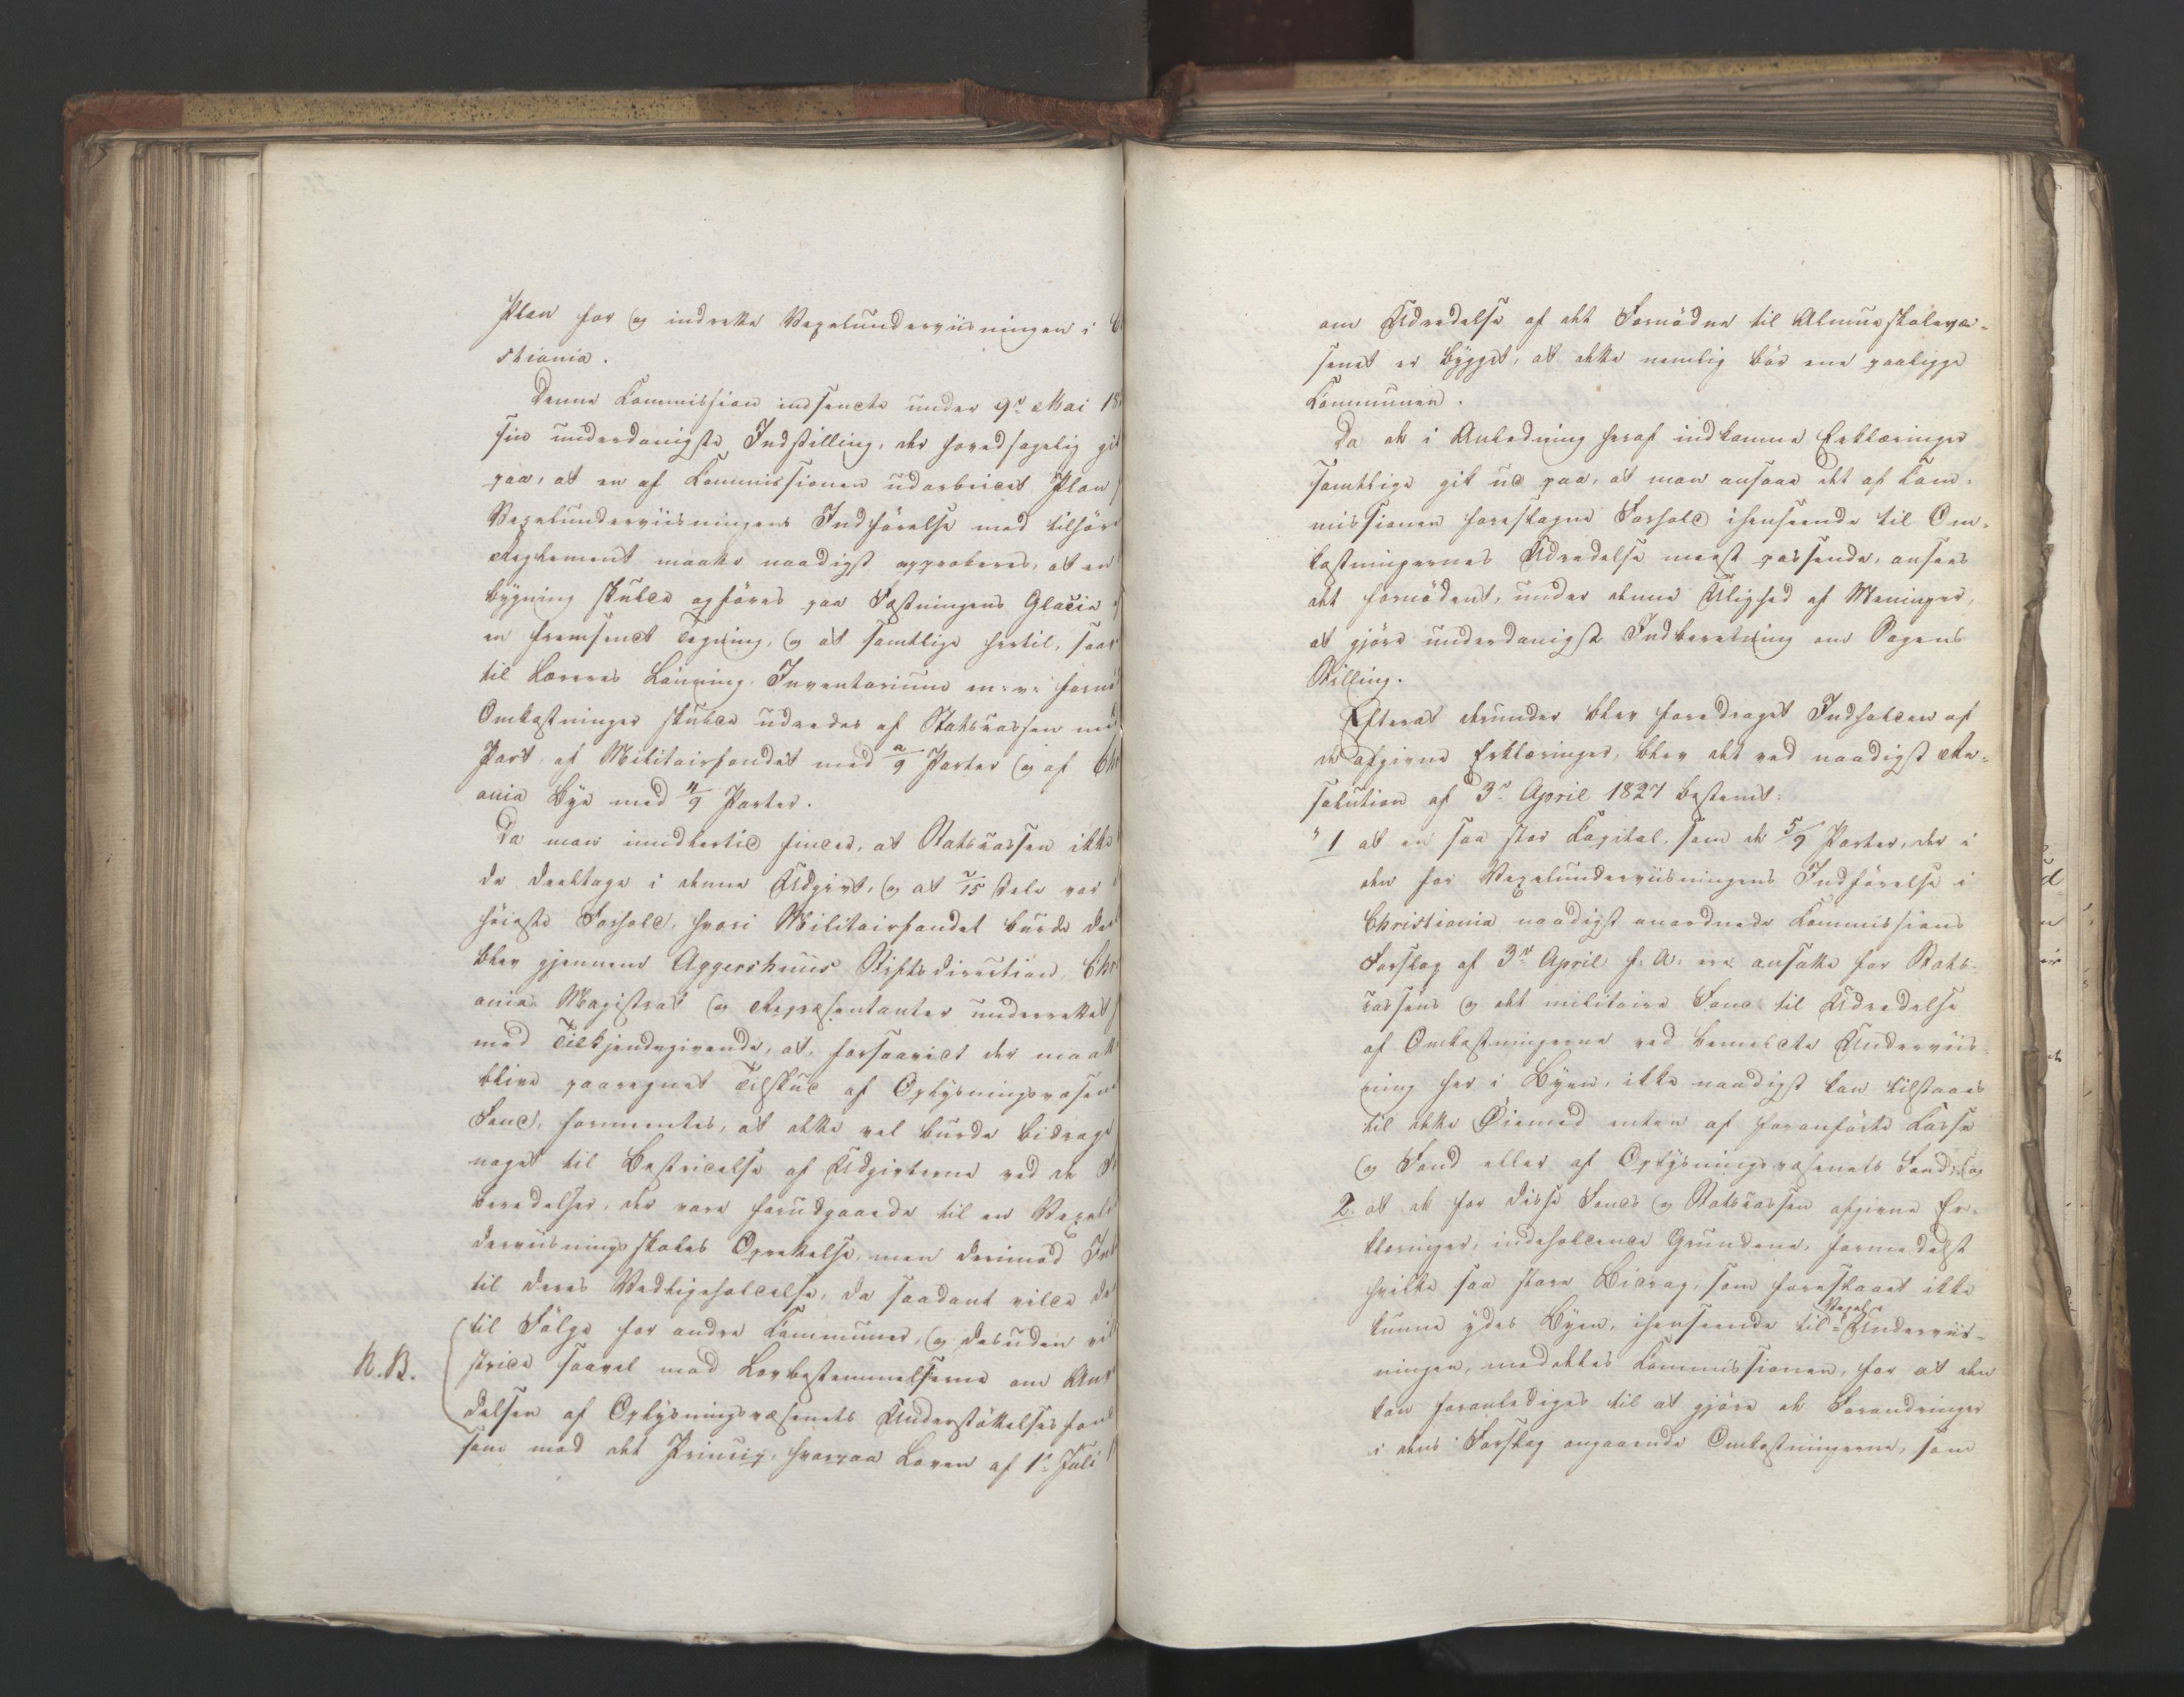 Plan for og indrette Vexelunderviisningen i C
stiania.
Denne Commission indsendte under 9de Mai 18
sin underdanigste Indstilling, der hovedsagelig gik
paa, at en af Commissionen udarbeidet Plan
Vexelunderviisningens Indförelse med tilhör
Reglement maatte naadigst approberes, at en
bygning skulde opföres paa Fæstningens Glacie
en fremsendt Tegning, og at samtlige hertil, saav
til Læreres Lönning, Inventarium m: v: forn
Omkostninger skulde udredes af Statskassen med
Part, af Militairfondet med 9 Parter og af Chr
ania Bye med 4/9 Parter.
Da man imidlertid fandt, at Statskassen ikke
de deeltage i denne Udgivt, og at 2/15 Dele var
höieste Forhold, hvori Militairfondet burde del
blev gjennem Aggershuus Stiftsdirection Chr
ania Magistrat og Repræsentanter underrettet
med Tilkjendegivende, at, forsaavidt der maatte
blive paaregnet Tilskud af Oplysningsvæsen
Fond, formeentes, at dette vel burde bidrage
noget til Bestridelse af Udgivterne ved de
beredelser, der vare forudgaaende til en Vexel
derviisningsskoles Oprettelse, men derimod Int
til deres Vedligeholdelse, da saadant vilde
til Fölge for andre Kommuner, og desuden
N. B. stride saavel mod Lovbestemmelserne om Anv
delsen af Oplysningsvæsenets Understöttelsesfond
som mod det Princip, hvorpaa Loven af 1ste Juli
om Udredelse af det Fornödne til Almueskolevæ-
senet er bygget, at dette nemlig bör ene paaligge
Communen.
Da de i Anledning heraf indkomne Erklæringer
samtlige gik ud paa, at man ansaae det af Com-
missionen foreslagne Forhold ihenseende til Om-
kostningernes Udredelse meest passende, ansees
det fornödent, under denne Ulighed af Meninger,
at gjöre underdanigst Indberetning om Sagens
Stilling.
Efterat derunder blev foredraget Indholden af
de afgivne Erklæringer, blev det ved naadigst Re-
solution af 3die April 1827 bestemt:
" 1 at en saa stor Capital, som de 5/9 Parter, der i
den for Vexelunderviisningens Indförelse i
Christiania naadigst anordnede Commissions
Forslag af 3die April f: A: ere ansatte for Stats-
cassens og det militaire Fond til Udredelse
af Omkostningerne ved bemeldte Underviis-
ning her i Byen, ikke naadigst kan tilstaaes
til dette Öiemed enten af foranförte Casse
og Fond eller af Oplysningsvæsenets Fond; og
2. at de for disse Fonds og Statskassen afgivne Er-
klæringer, indeholdende Grundene, formedelst
hvilke saa store Bidrag, som foreslaaet ikke
kunne ydes Byen, ihenseende til Vexel-Underviis-
ningen, meddeles Commissionen, for at den
kan foranlediges til at gjöre de Forandringer
i dens Forslag angaaende Omkostningerne, som